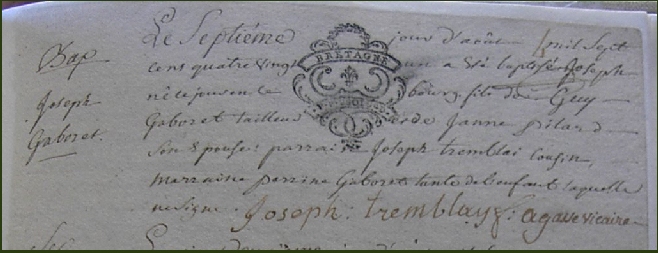 Bap
Joseph
Gaboret.
Le Septiéme jour d'août mil Sept
cens quatre vingt un a été baptisé Joseph
né ce jour en ce bourg fils de Guy
Gaboret tailleur et de Janne pilard
Son Epouse: parrain Joseph tremblai cousin,
marraine perrine Gaboret tante de l'enfant laquelle
ne signe. Joseph: tremblay: agaue vicaire
BRETAGNE